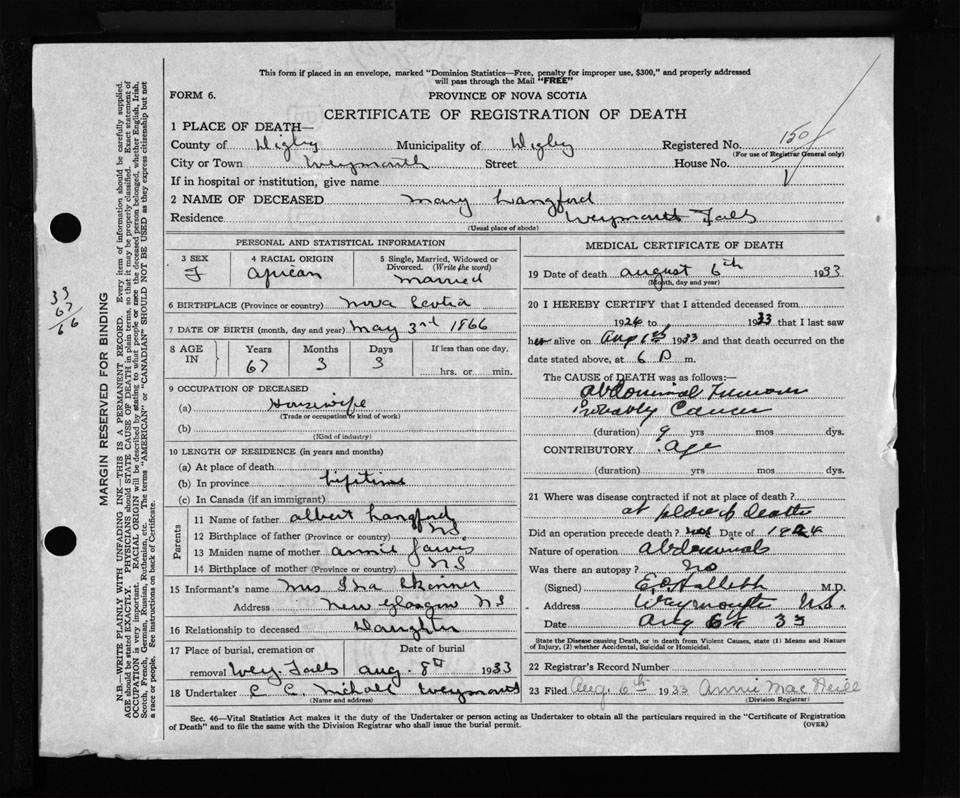 This form if placed in an envelope, marked "Dominion Statistics—Free, penalty for improper use, $300," and properly addressed
will pass through the Mail "FREE"
FORM 6. PROVINCE OF NOVA SCOTIA
CERTIFICATE OF REGISTRATION OF DEATH
1 PLACE OF DEATH—
County of Digby Municipality of Digby Registered No. 150
(For use of Registrar General only)
City or Town Weymouth Street House No.
If in hospital or institution, give name
2 NAME OF DECEASED Mary Langford
Residence Weymouth Falls
(Usual place of abode)
PERSONAL AND STATISTICAL INFORMATION
3 SEX 4 RACIAL ORIGIN 5 Single, Married, Widowed or
Divorced. (Write the word)
F African Married
6 BIRTHPLACE (Province or country) Nova Scotia
7 DATE OF BIRTH (month, day and year) May 3rd 1866
8 AGE IN Years Months Days If less than one day,
67 3 3 hrs. or min.
9 OCCUPATION OF DECEASED
(a) Housewife
(Trade or occupation or kind of work)
(b)
(Kind of industry)
10 LENGTH OF RESIDENCE (in years and months)
(a) At place of death
(b) In province lifetime
(c) In Canada (if an immigrant)
Parents
11 Name of father Albert Langford
12 Birthplace of father (Province or country) NS
13 Maiden name of mother Annie Jarvis
14 Birthplace of mother (Province or country) NS
15 Informant's name Mrs Ida Skinner
Address New Glasgow NS
16 Relationship to deceased Daughter
17 Place of burial, cremation or Date of burial
removal Wey. Falls Aug. 8th 1933
18 Undertaker C C. Nichols Weymouth
(Name and address)
MEDICAL CERTIFICATE OF DEATH
19 Date of death August 6th 1933
(Month, day and year)
20 I HEREBY CERTIFY that I attended deceased from
1924 to 1933 that I last saw
her alive on Aug 6th 1933 and that death occurred on the
date stated above, at 6 P m.
The CAUSE of DEATH was as follows:—
Abdominal Tumour
Probably Cancer
(duration) 9 yrs mos dys.
CONTRIBUTORY Age
(duration) yrs mos dys.
21 Where was disease contracted if not at place of death?
at place of death
Did an operation precede death? Date of
Nature of operation Abdominal
Was there an autopsy? No
(Signed) Hallett M.D.
Address Weymouth N.S.
Date Aug 6th 33
State the Disease causing Death, or in death from Violent Causes, state (1) Means and Nature
of Injury, (2) whether Accidental, Suicidal or Homicidal.
22 Registrar's Record Number
23 Filed Aug. 6th 1933 Annie MacNeill
(Division Registrar)
Sec. 46—Vital Statistics Act makes it the duty of the Undertaker or person acting as Undertaker to obtain all the particulars required in the "Certificate of Registration
of Death" and to file the same with the Division Registrar who shall issue the burial permit. (OVER)
33
67
66
MARGIN RESERVED FOR BINDING
N.B.—WRITE PLAINLY WITH UNFADING INK—THIS IS A PERMANENT RECORD. Every item of information should be carefully supplied.
AGE should be stated EXACTLY. PHYSICIANS should STATE CAUSE OF DEATH in plain terms, so that it may be properly classified. Exact statement of
OCCUPATION is very important. RACIAL ORIGIN will be described by stating to what people or race the deceased person belonged, whether English, Irish,
Scotch, French, German, Russian, Ruthenian, etc. The terms "AMERICAN" or "CANADIAN" SHOULD NOT BE USED as they express citizenship but not
a race or people. See instructions on back of Certificate.